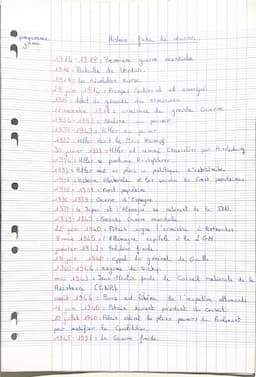 programme
3ème
Histoire fiche de révision.
1914-1918: Première guerre mondiale
1916: Bataille de Verdun.
1917: La révolution russe.
28 juin 1914:
1915: début du génocide des arméniens
11 novembre 1918: armistice de la grande Guerre.
1924-1953: Staline au pouvoir
1933-1945: Hitler au pouvoir
1925: Hitler écrit le Mein Kampf
30 janvier 1933: Hitler est nommé Chancelier par Hindenburg
1934: Hitler se proclame Reichsführer
1933: Hitler met en place sa politique d'
1936: Victoire électorale et les
1936-1938: Front populaire
1936-1939: Guerre d'Espagne
1933: Le Japon et l'Allemagne se retirent de la SDN.
1939-1945: Seconde Guerre mondiale
22 juin 1940: Pétain signe l'armistice à Rethondes.
8 mai 1945: l'Allemagne capitule
18 juin 1940: appel du général de Gaulle
1940-1944: régime de Vichy.
mai 1943: Jean Moulin fonde le Conseil nationale de la
Résistance (CNR)
août 1944: Paris est libérée de l'occupation allemande
juin 1940: Pétain devient président du conseil.
10 juillet 1940: Pétain obtient les pleins pouvoirs du Parlement
pour modifier la Constitution.
La Guerre froide.